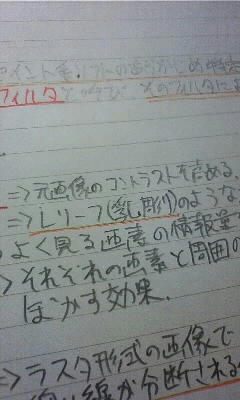 ペイントモ!ソフトのあらかじめ
フィルタ そのフィルタによ
⇒元画像のコントラストを高める。
⇒レリーフ(乳彫り)のような
よく見る画素の情報量
>それぞれの画素と周囲の
ぼかす効果.
⇒ラスタ形式の画像で
線が分断される